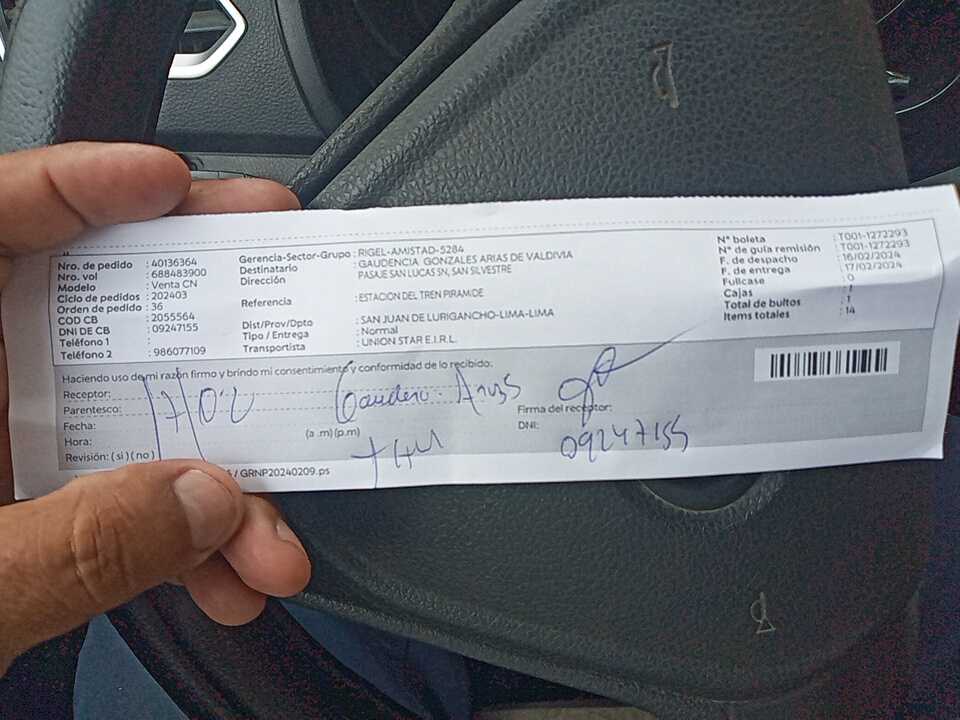 Nro. de pedido : 40136364
Nro. vol : 688483900
Modelo : Venta CN
Ciclo de pedidos : 202403
Orden de pedido : 36
COD CB : 2055564
DNI DE CB : 09247155
Teléfono 1 :
Teléfono 2 : 986077109
Gerencia-Sector-Grupo : RIGEL-AMISTAD-5284
Destinatario : GAUDENCIA GONZALES ARIAS DE VALDIVIA
Dirección PASAJE SAN LUCAS SN, SAN SILVESTRE
Referencia : ESTACION DEL TREN PIRAMIDE
Dist/Prov/Dpto : SAN JUAN DE LURIGANCHO-LIMA-LIMA
Tipo / Entrega : Normal
Transportista : UNION STAR E.I.R.L.
N° boleta : T001-1272293
N° de guía remisión : T001-1272293
F. de despacho : 16/02/2024
F. de entrega : 17/02/2024
Fullcase : 0
Cajas : 1
Total de bultos : 1
Items totales : 14
Haciendo uso de mi razón firmo y brindo mi consentimiento y conformidad de lo recibido.
Receptor:
Parentesco:
Fecha:
Hora: (a .m) (p.m)
Revisión: ( si ) ( no )
Firma del receptor:
DNI: 09247155
/ GRNP20240209.ps